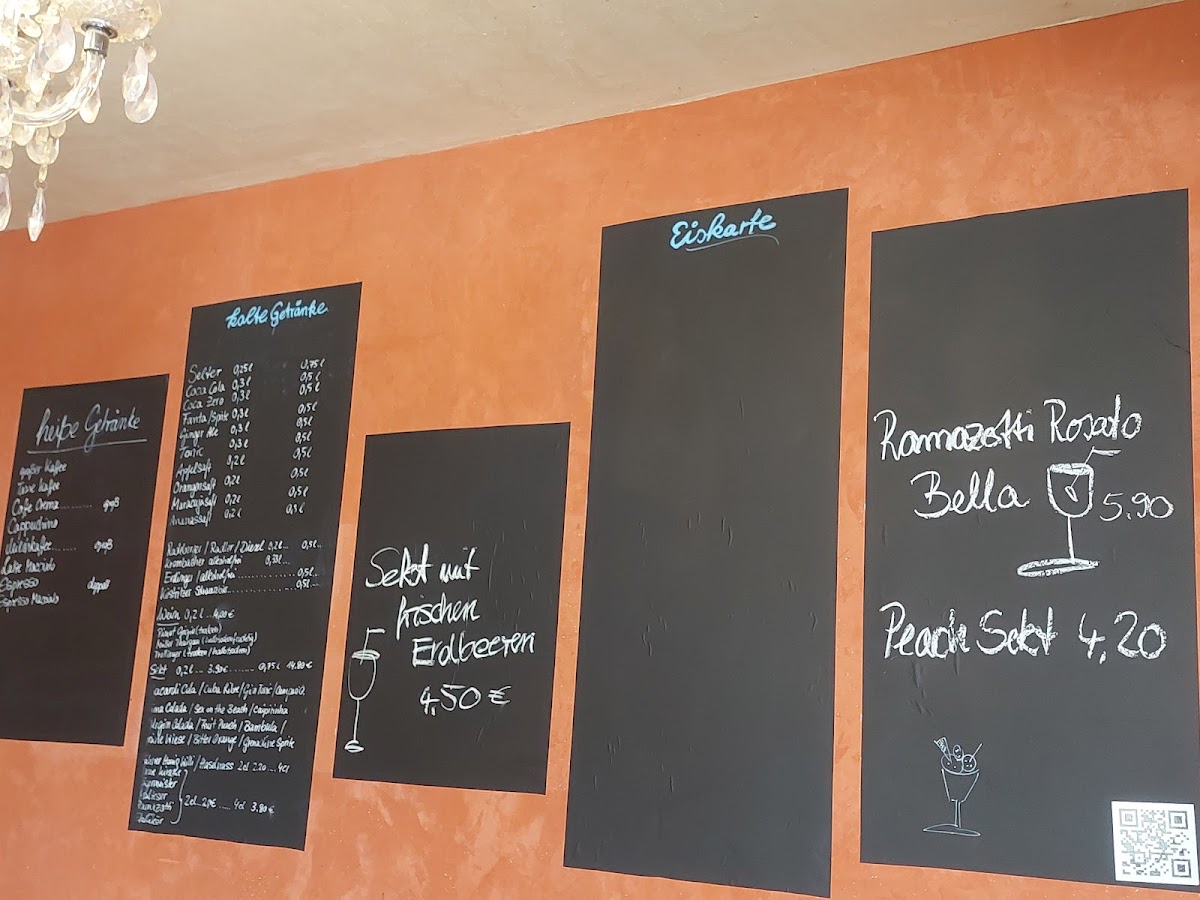 heiße Getränke
großer Kaffee
Tasse Kaffee
Cafe Crema ........ groß
Cappuchino
Milchkaffee ...... groß
Latte Macciato
Espresso doppelt
Espresso Macciato
kalte Getränke
Selter 0,25l 0,75l
Coca Cola 0,3l 0,5l
Coca Zero 0,3l 0,5l
Fanta/Sprite 0,3l 0,5l
Ginger Ale 0,3l 0,5l
Tonic 0,3l 0,5l
Apfelsaft 0,2l 0,5l
Orangensaft 0,2l 0,5l
Maracujasaft 0,2l 0,5l
Ananassaft 0,2l 0,5l
Radeberger / Radler / Diesel 0,2l ... 0,5l ...
Krombacher alkoholfrei 0,33l ...
Erdinger / alkoholfrei ............ 0,5l ...
Köstritzer Schwarzbier ............ 0,5l ...
Wein 0,2l ... 4,00 €
Sekt 0,2l ... 3.90€ ........ 0,75l 14.80€
Cola / Cuba Libre / Gin Tonic / Campari O
Colada / Sex on the Beach / Caipirinha
Virgin Colada / Fruit Punch / Bambula /
Wiese / Bitter Orange / Grenadine Sprite
2cl 2.20 ... 4cl
2cl ... 4cl 3.80€
Sekt mit
frischen
Erdbeeren
4,50 €
Eiskarte
Ramazotti Rosato
Bella 5,90
Peach Sekt 4,20